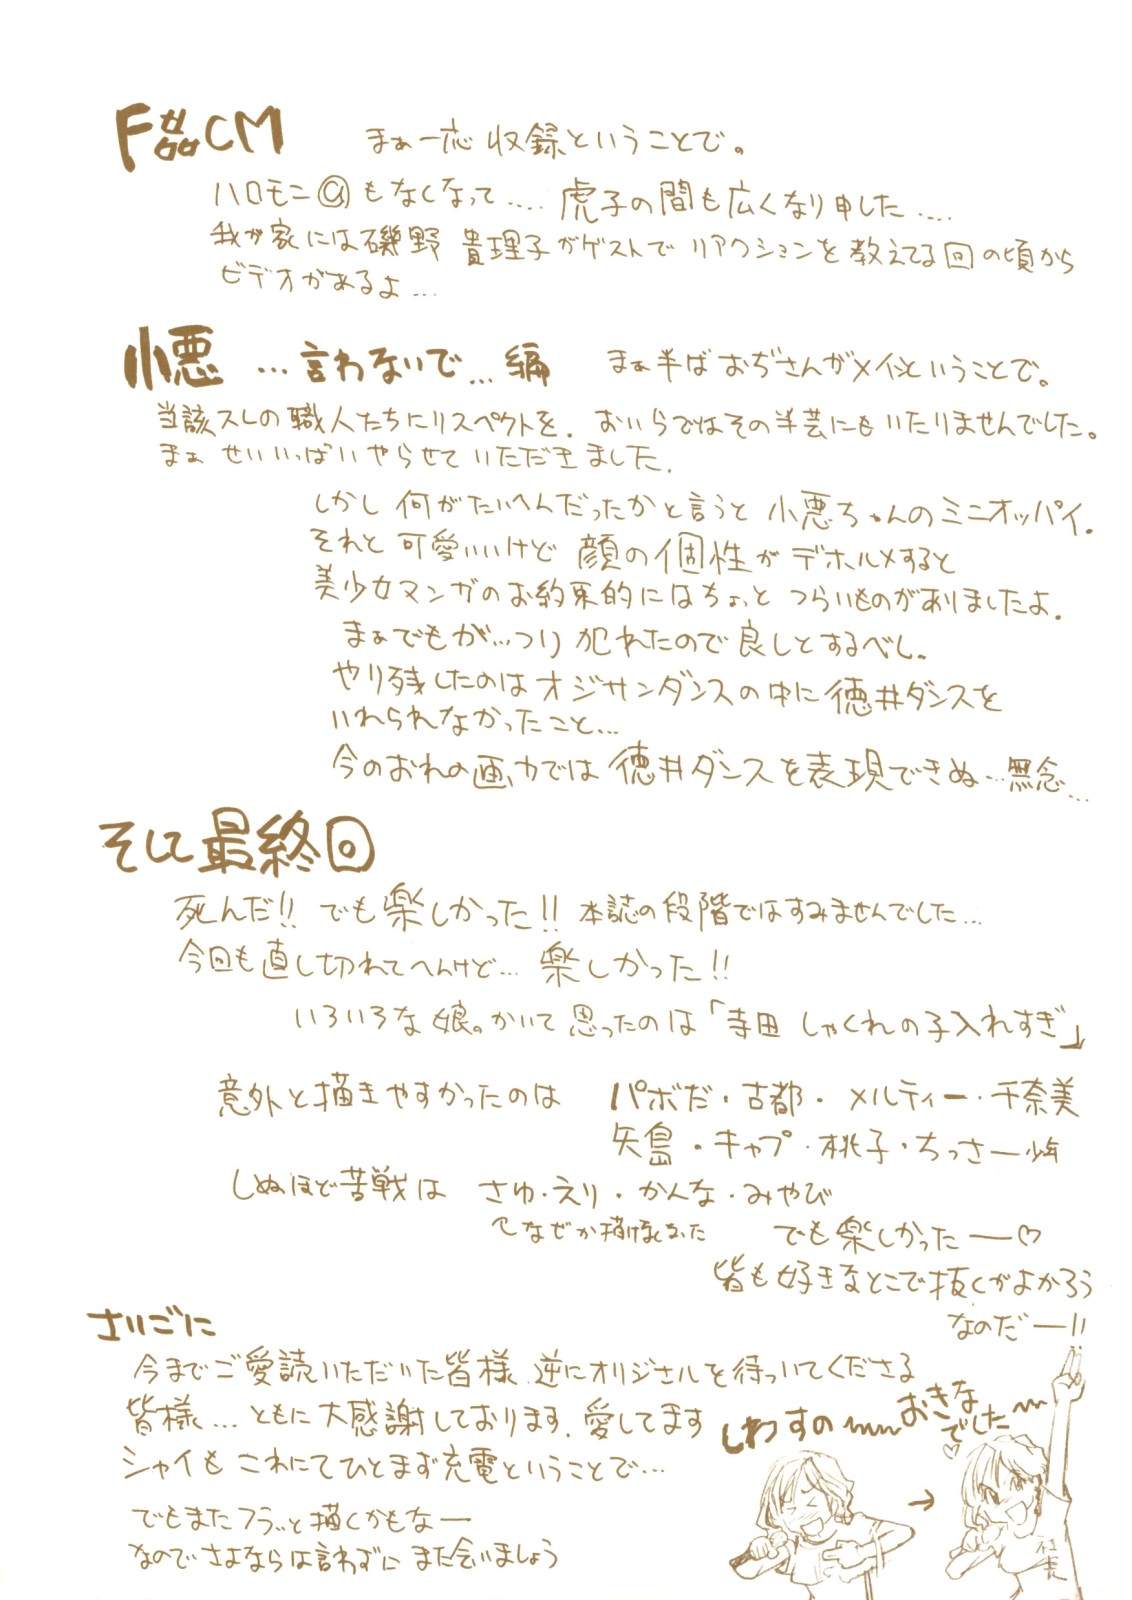 F磊CM
まぁ一応 収録ということで。
ハロモニ@もなくなって.... 虎子の間も広くなり申した....
我が家には磯野 貴理子がゲストで リアクションを教えてる回の頃から
ビデオがあるよ...
小悪 ...言わないで...編
まぁ半ば おぢさんがメインということで。
当該スレの職人たちにリスペクトを。 おいらではその半芸にもいたりませんでした。
まぁ せいいっぱいやらせていただきました.
しかし 何がたいへんだったかと言うと 小悪ちゃんのミニオッパイ.
それと 可愛いいけど 顔の個性が デホルメすると
美少女マンガのお約束的にはちょっと つらいものがありましたよ.
まぁでもが...つり 犯れたので良しとするべし。
やり残したのは オジサンダンスの中に 徳井ダンスを
いれられなかったこと...
今のおれの画力では 徳井ダンスを表現できぬ...無念...
そして最終回
死んだ!! でも楽しかった!! 本誌の段階ではすみませんでした...
今回も直し切れてへんけど... 楽しかった!!
いろいろな娘。かいて 思ったのは「寺田 しゃくれの子入れすぎ」
意外と描きやすかったのは パボだ・古都・メルティー・千奈美
矢島・キャプ・桃子・ちっさー少年
しぬほど苦戦は さゆ・えり・かんな・みやび
なぜか描けなかった
でも楽しかったー♡
皆も好きなとこで抜くがよかろう
なのだー!!
さいごに
今までご愛読いただいた皆様 逆にオリジナルを待っいてくださる
皆様...ともに大感謝しております. 愛してます
シャイも これにてひとまず充電ということで...
でもまたフラッと描くかもなー
なので さよならは言わずに また会いましょう
しわすの
おきな
でした
社長